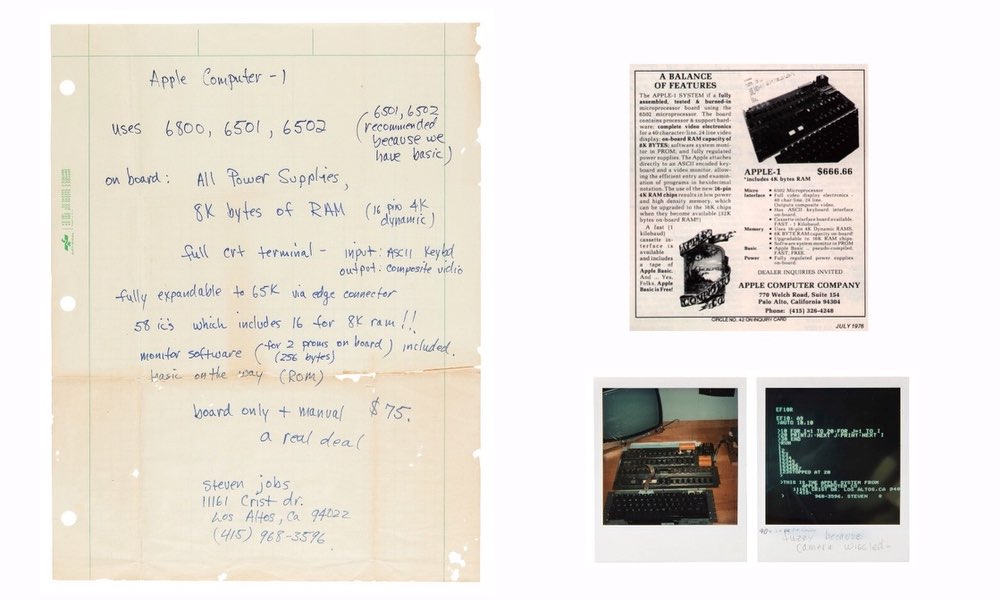 Apple Computer-1
uses 6800, 6501, 6502
(6501, 6502
recommended
because we
have basic)
on board: All Power Supplies,
8K bytes of RAM (16 pin 4K
dynamic)
full crt terminal - input: ASCII Keybd
output: composite vidio
fully expandable to 65K via edge connector
58 ic's which includes 16 for 8K ram!!
monitor software (for 2 proms on board) included.
(256 bytes)
basic on the way (ROM)
board only + manual $75.
a real deal
Steven jobs
11161 Crist dr.
Los Altos, Ca 94022
(415) 968-3596
A BALANCE
OF FEATURES
The APPLE-1 SYSTEM if a fully
assembled, tested & burned-in
microprocessor board using the
6502 microprocessor. The board
contains processor & support hard-
ware; complete video electronics
for a 40 character-line, 24 line video
display; on-board RAM capacity of
8K BYTES; software system moni-
tor in PROM; and fully regulated
power supplies. The Apple attaches
directly to an ASCII encoded key-
board and a video monitor, allow-
ing the efficient entry and examina-
tion of programs in hexidecimal
notation. The use of the new 16-pin
4K RAM chips results in low power
and high density memory, which
can be upgraded to the 16K chips
when they become available (32K
bytes on-board RAM!!)
A fast (1
kilobaud)
cassette in-
terface is
available
and includes
a tape of
Apple Basic.
And ... Yes,
Folks. Apple
Basic is Free!
APPLE-1 $666.66
*includes 4K bytes RAM
Micro • 6502 Microprocessor
Interface • Full video display electronics -
40 char line, 24 line.
Outputs composite video.
• Has ASCII keyboard interface
on-board.
• Cassette interface board available.
FAST - 1 Kilobaud.
Memory • Uses 16-pin 4K Dynamic RAMS.
• 8K BYTE RAM capacity on-board
• Upgradable to 16K RAM chips.
• Software system monitor in PROM
Basic • Apple Basic - pseudo-compiled,
FAST, FREE.
Power • Fully regulated power supplies
on-board.
DEALER INQUIRIES INVITED
APPLE COMPUTER COMPANY
770 Welch Road, Suite 154
Palo Alto, California 94304
Phone: (415) 326-4248
CIRCLE NO. 42 ON INQUIRY CARD
JULY 1976
EF10R
EF10: A9
>AUTO 10,10
>10 FOR I=1 TO 20:FOR J=1 TO I
>20 PRINTJ;:NEXT J:PRINT:NEXT I
>30 END
>RUN
STOPPED AT 20
>THIS IS THE APPLE SYSTEM FROM
APPLE COMPUTER CO
11161 CRIST DR, LOS ALTOS,CA 940
(415)
968-3596, STEVEN
fuzzy because
camera wiggled-